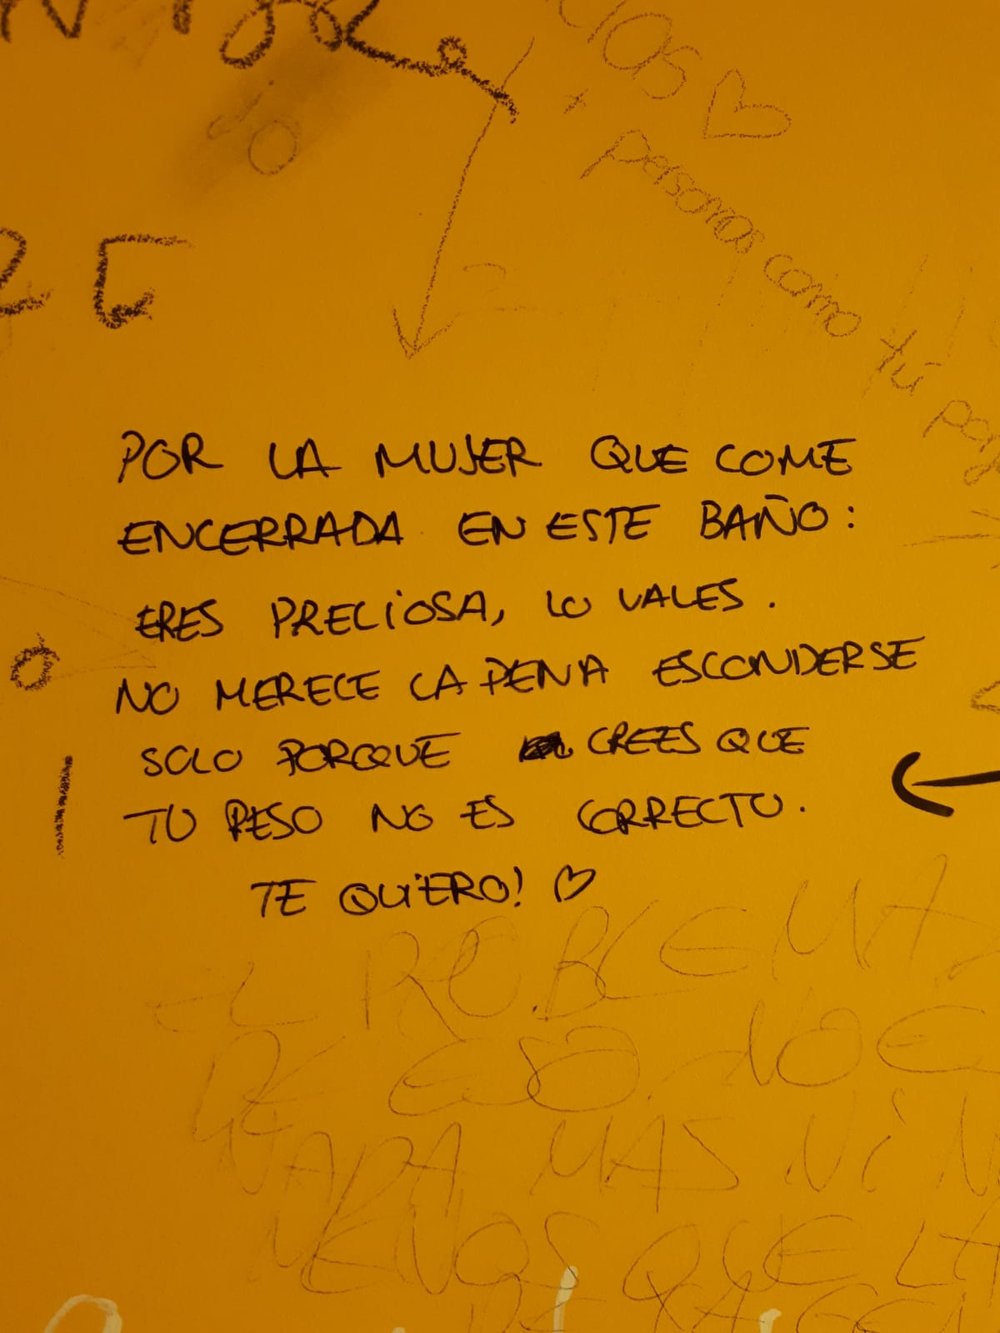 personas como tú
POR LA MUJER QUE COME
ENCERRADA EN ESTE BAÑO:
ERES PRECIOSA, LO VALES.
NO MERECE LA PENA ESCONDERSE
SOLO PORQUE CREES QUE
TU PESO NO ES CORRECTO.
TE QUIERO! ♡
EL PROBLEMA
DE ESO NO E
NADA MAS NI N
MENOS QUE LA